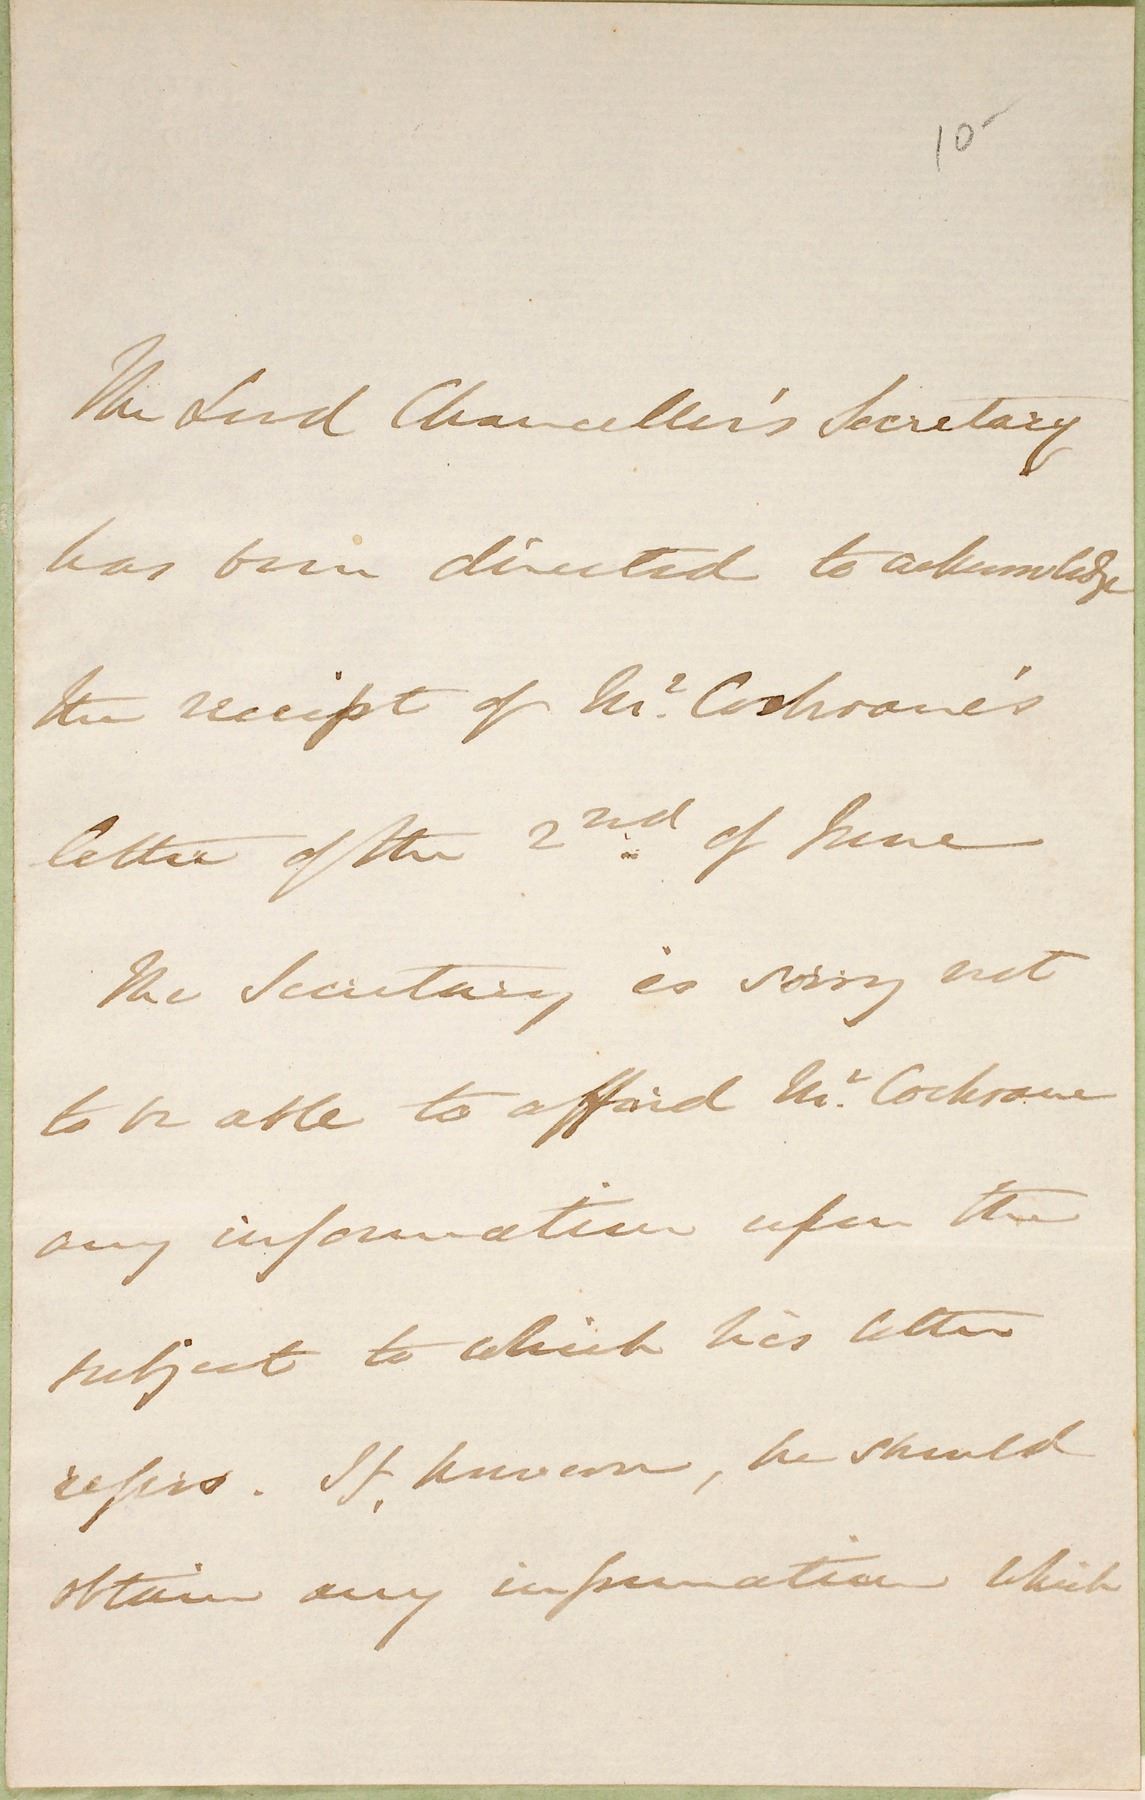 10
The Lord Chancellor's Secretary
has been directed to acknowledge
the receipt of Mr. Cochrane's
letter of the 2nd of June
The Secretary is sorry not
to be able to afford Mr. Cochrane
any information upon the
subject to which his letter
refers. If, however, he should
obtain any information which